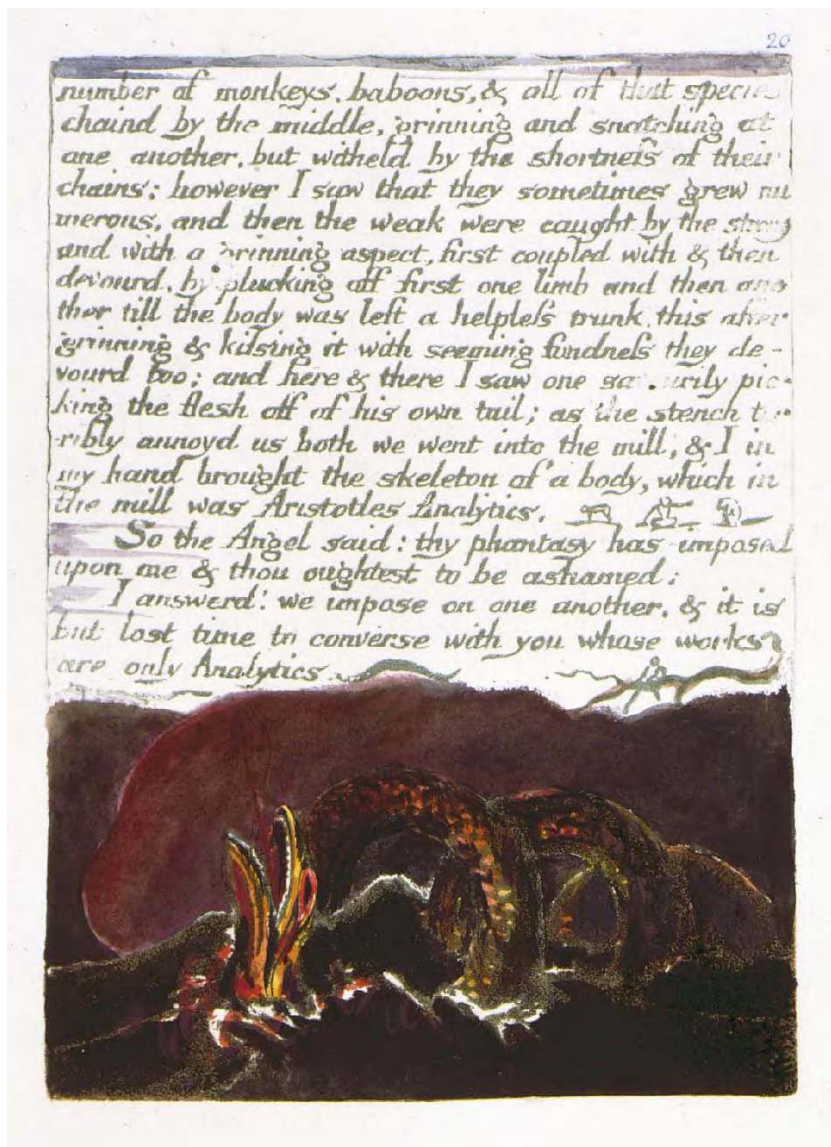 20
number of monkeys, baboons, & all of that species
chaind by the middle, grinning and snatching at
one another, but witheld by the shortness of their
chains: however I saw that they sometimes grew nu
merous, and then the weak were caught by the strong
and with a grinning aspect, first coupled with & then
devourd, by plucking off first one limb and then ano
ther till the body was left a helpless trunk, this after
grinning & kissing it with seeming fondness they de-
vourd too; and here & there I saw one savourily pic-
king the flesh off of his own tail; as the stench ter-
ribly annoyd us both we went into the mill, & I in
my hand brought the skeleton of a body, which in
the mill was Aristotles Analytics.
So the Angel said: thy phantasy has imposed
upon me & thou oughtest to be ashamed:
I answerd: we impose on one another, & it is
but lost time to converse with you whose works
are only Analytics